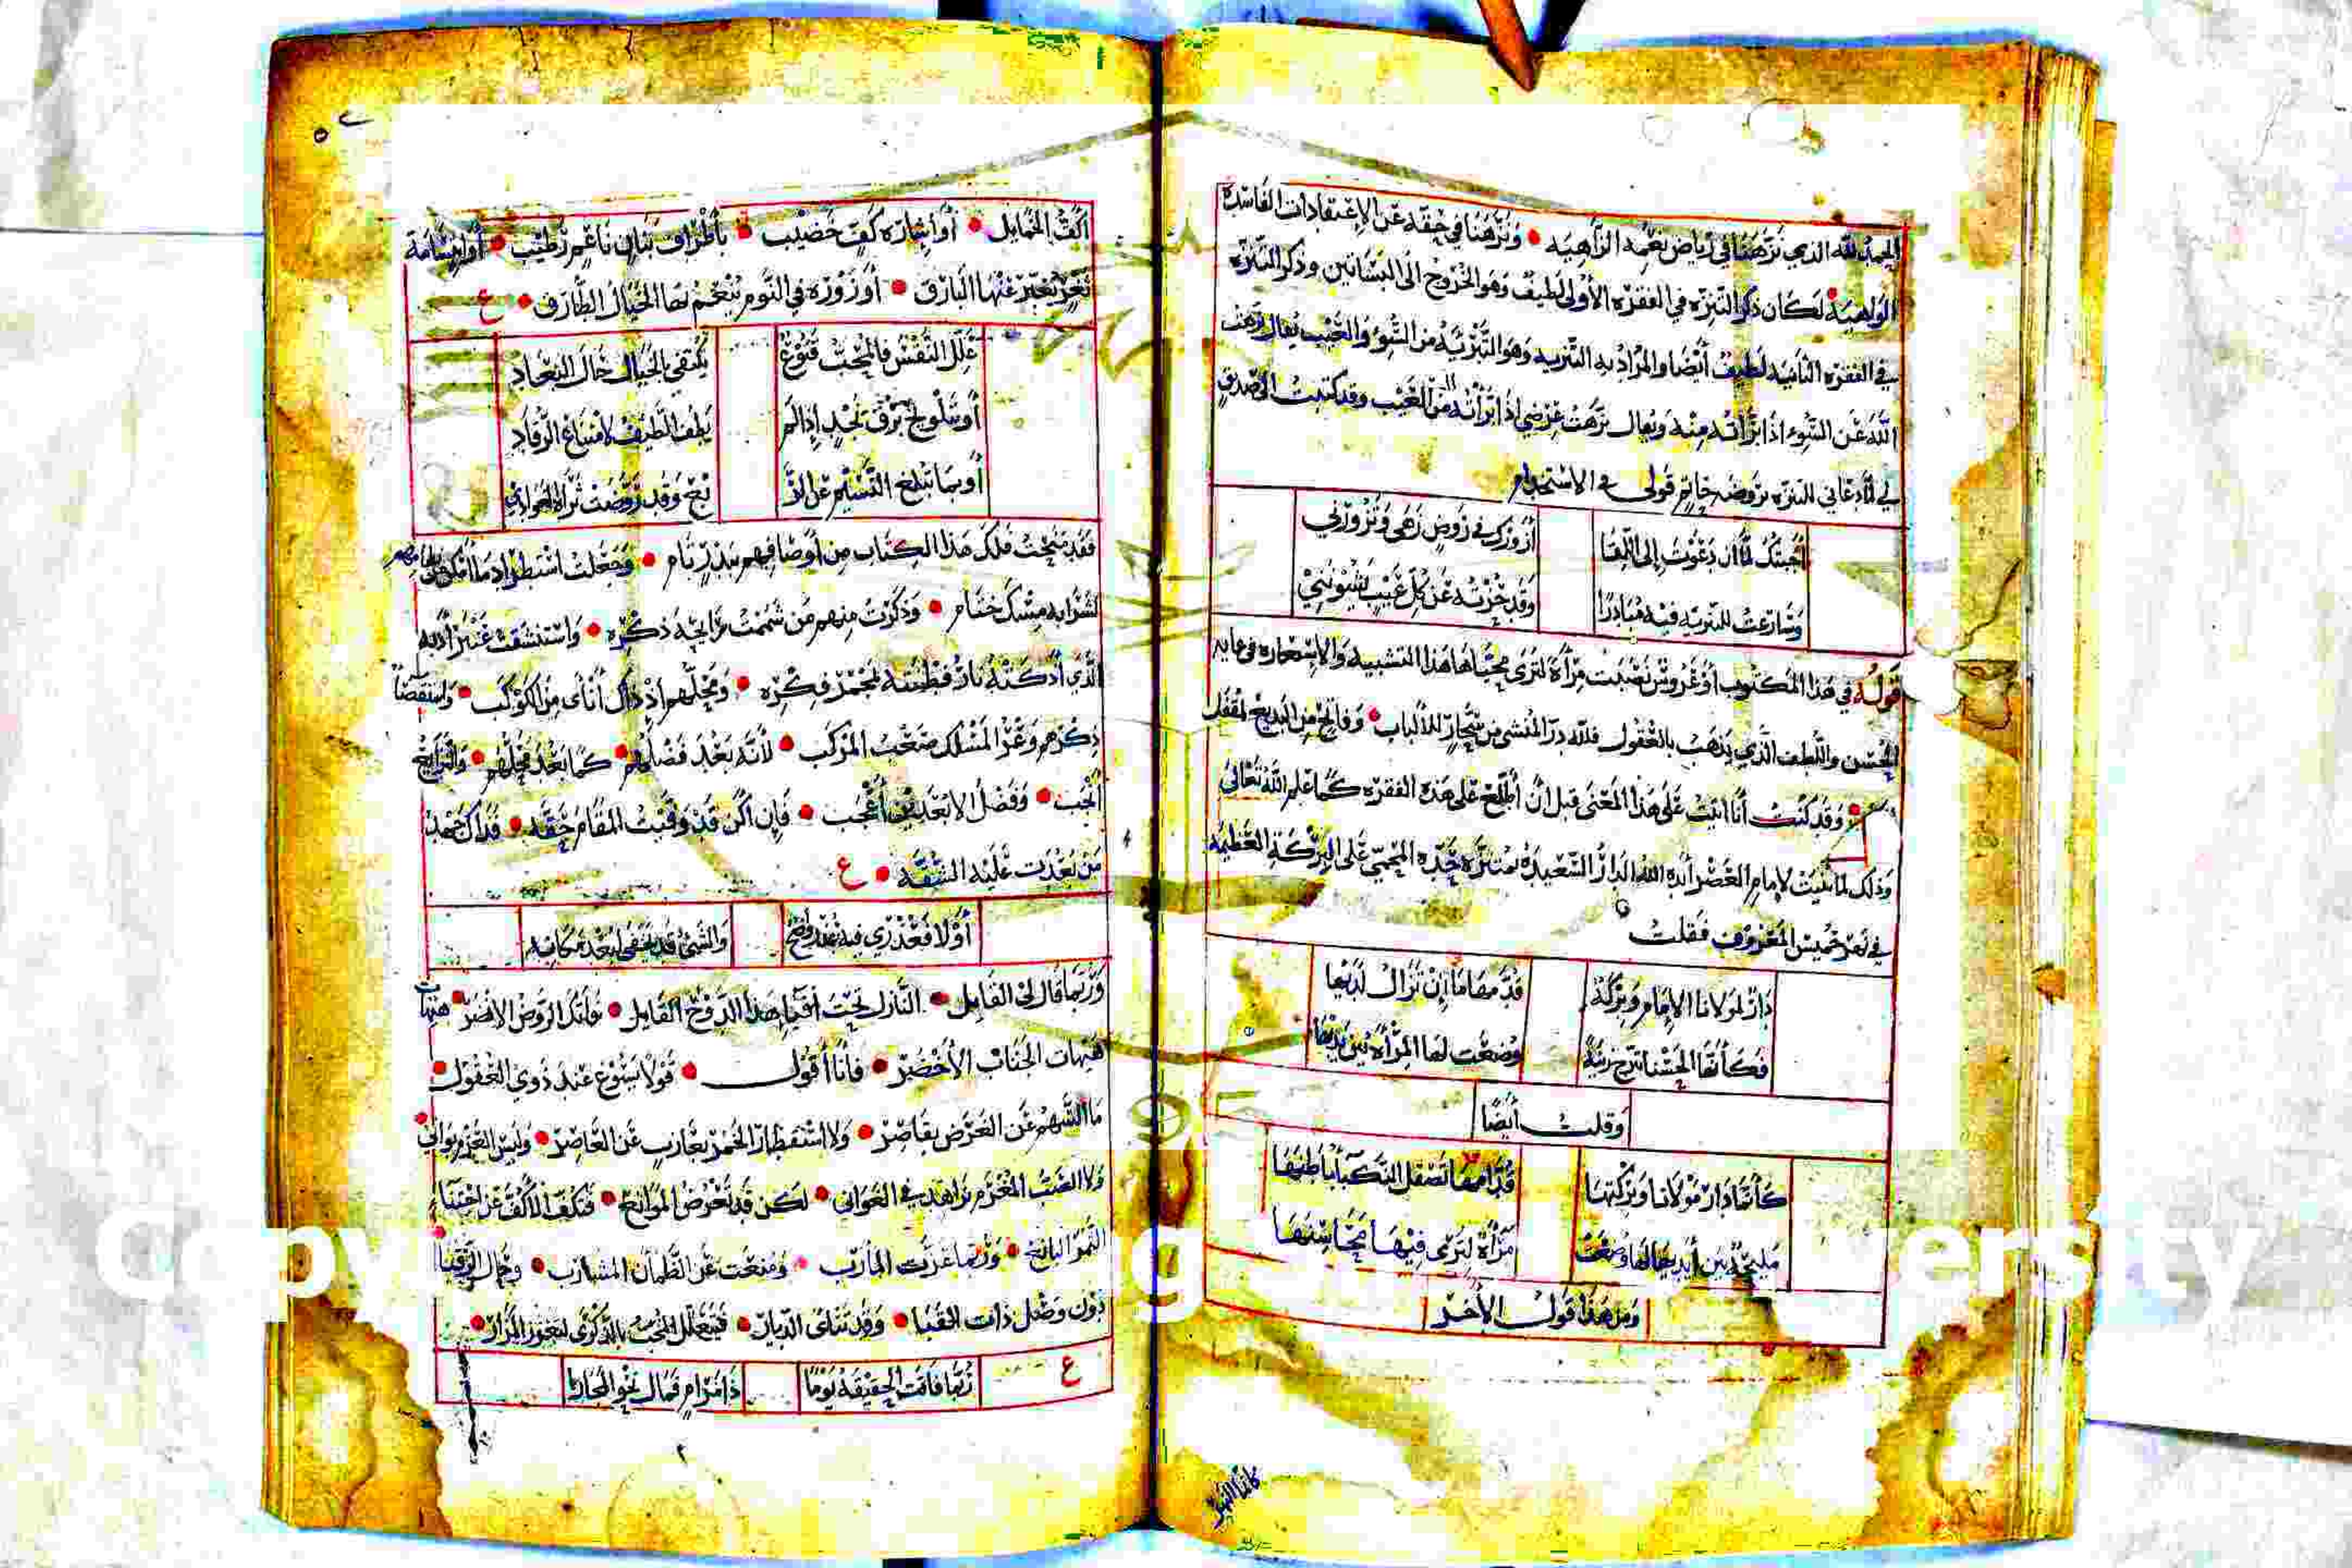 الحمد لله الذي نزهنا في رياض نعمه الزاهيه • ونزهنا في حقه عن الاعتقادات الفاسده
الواهيه لكان ذكر التنزه في الفقره الأولى لطيف وهو الخروج الى البساتين وذكر التنزه
في الفقره الثانيه لطيف أيضا والمراد به التنزيه وهو التنزيه من السوء والعيب يقال نزهت
الله عن السوء اذا برأته منه ويقال نزهت عرضي اذا برأته من العيب وقد كتبت الى صديق
لي لما دعاني للنزه بروضه حاتم قولي في الاستخدام
أجبتك لما أن دعوت إلى اللقا أزورك في روض زهى وتزورني
وسارعت للتنزيه فيه مبادرا وقد حزته عن كل عيب يشينني
قوله في هذا المكتوب أو عروش نصبت مرآة لترى محياها هذا التشبيه والاستعاره في غايه
الحسن واللطف الذي يذهب بالعقول فلله در المنشي من سحار للألباب • وفاتح من البديع لمقفل
• وقد كنت أنا أتيت على هذا المعنى قبل ان أطلع على هذه الفقره كما علم الله تعالى
وذلك لما بنيت لإمام العصر أيده الله الدار السعيده بمتنزه جده المحمي على البركة العظيمه
في نهر خميس المعروف فقلت
دار لمولانا الإمام وبركة قد مقاما إن تزال لديها
فكأنها الحسنا تدرج زينة وضعت لها المرآة بين يديها
وقلت أيضا
كأنما دار مولانا وبركتها قدامها تصقل النكبا أباطنها
مليحة بين أيديها لها وضعت مرآة لترى فيها محاسنها
ومن هذا قول الآخر
كأننا النهر
أكف الخمايل • أو إشارة كف خضيب • بأطراف بنان ناعم رطيب • أو ابتسامة
ثغر يعبر عنها البارق • أو زورة في النوم ينعم بها الخيال الطارق • ع
علل النفس فالمحب قنوع يكتفي بالخيال خال البعاد
أو بتلويح برق نجد إذا لم يطف الطيف لامتناع الرقاد
أو بما تبلغ التسليم عن الر يح وقد روضت ثراه الغوادي
فقد شحنت فلك هذا الكتاب من أوصافهم بدر تام • وجعلت استطراد ما أمكن
لشرابه مسك ختام • وذكرت منهم من شممت رايحة ذكره • واستنشقت عنبر أدبه
الذي أذكته نار فطنته بمجمر فكره • ومحلهم إذ ذاك أنأى من الكوكب • واستقصا
ذكرهم وعر المسلك صعب المركب • لأنه بعد فضلهم • كما بعد محلهم •
وفضل الابعد أعجب • فإن أكن قد وفيت المقام حقه • فذاك جهد
من بعدت عليه الشقه • ع
أو لا فعذري فيه عذر واضح والشئ قد يخفى لبعد مكانه
وربما قال لي القايل • النازل تحت أفيا هذا الدوح القايل • فاتك الروض الانضر • هيهات
هيهات الجناب الأخضر • فأنا أقول • قولا يسوغ عند ذوي العقول •
ما السهم عن الغرض بقاصر • ولا استقطار الخمر بعازب عن العاصر • وليس الغر بواني
ولا الصب المغرم بزاهد في الغواني • لكن قد تعرض الموانع • فتكف الأكف عن اجتنا
الثمر اليانع • وربما عزت المآرب • ومنعت عن الظمآن المشارب • وحال الرقبا
دون وصل ذات القبا • وقد تنأى الديار • فيتعلل المحب بالذكرى لبعد المزار •
ع ربما فاتت الحقيقة يوما ذا مرام فمال نحو المجاز